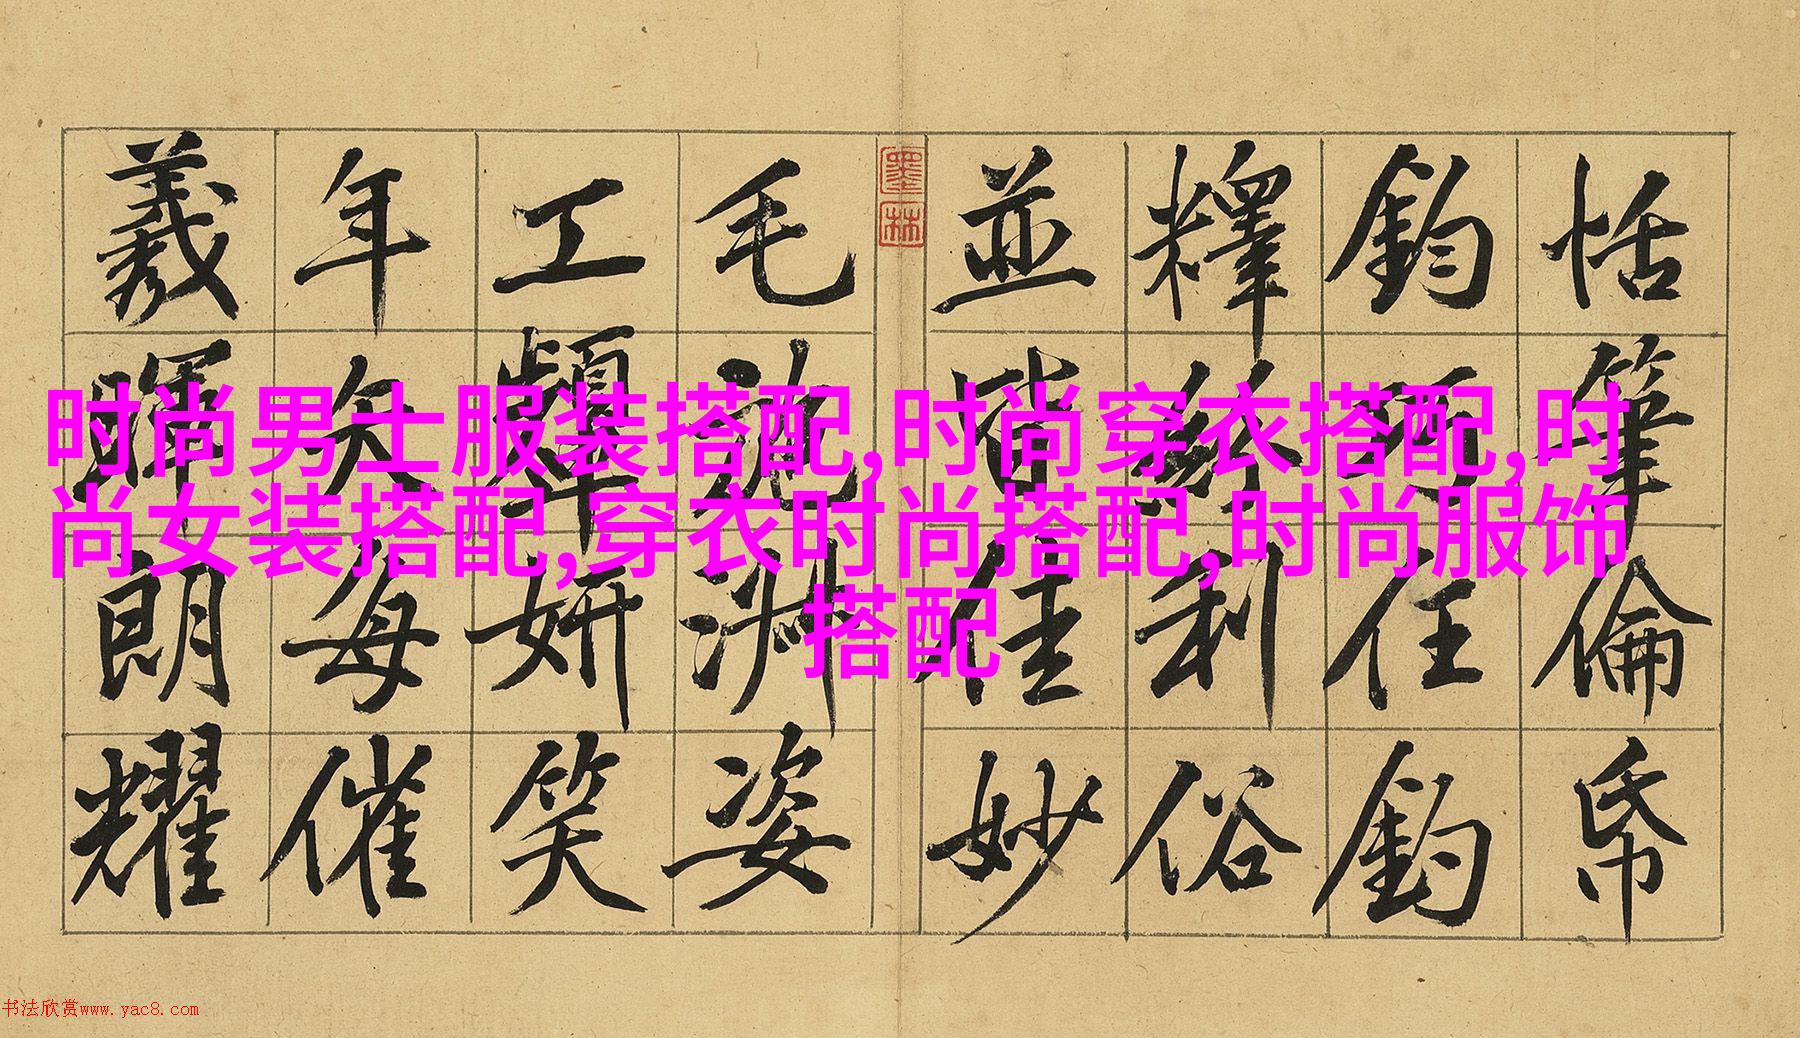 恬筆倫帋
鈞巧任釣
釋紛利俗
並皆佳妙
毛施淑姿
工顰妍笑
年矢每催
羲暉朗耀
墨林
时尚男士服装搭配,时尚穿衣搭配,时
尚女装搭配,穿衣时尚搭配,时尚服饰
搭配
书法欣赏www.yac8.com